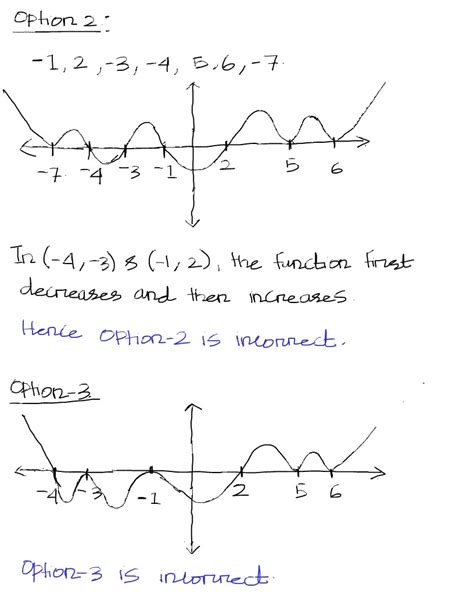 Option 2:
-1, 2, -3, -4, 5, 6, -7.
-7 -4 -3 -1 2 5 6
In (-4, -3) & (-1, 2), the function first
decreases and then increases.
Hence Option-2 is incorrect.
Option-3
-4 -3 -1 2 5 6
Option-3 is incorrect.